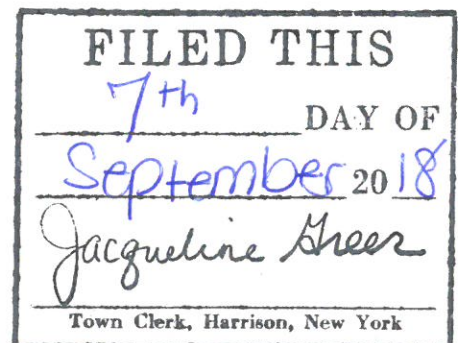 FILED THIS
7th DAY OF
September 20 18
Jacqueline Greer
Town Clerk, Harrison, New York